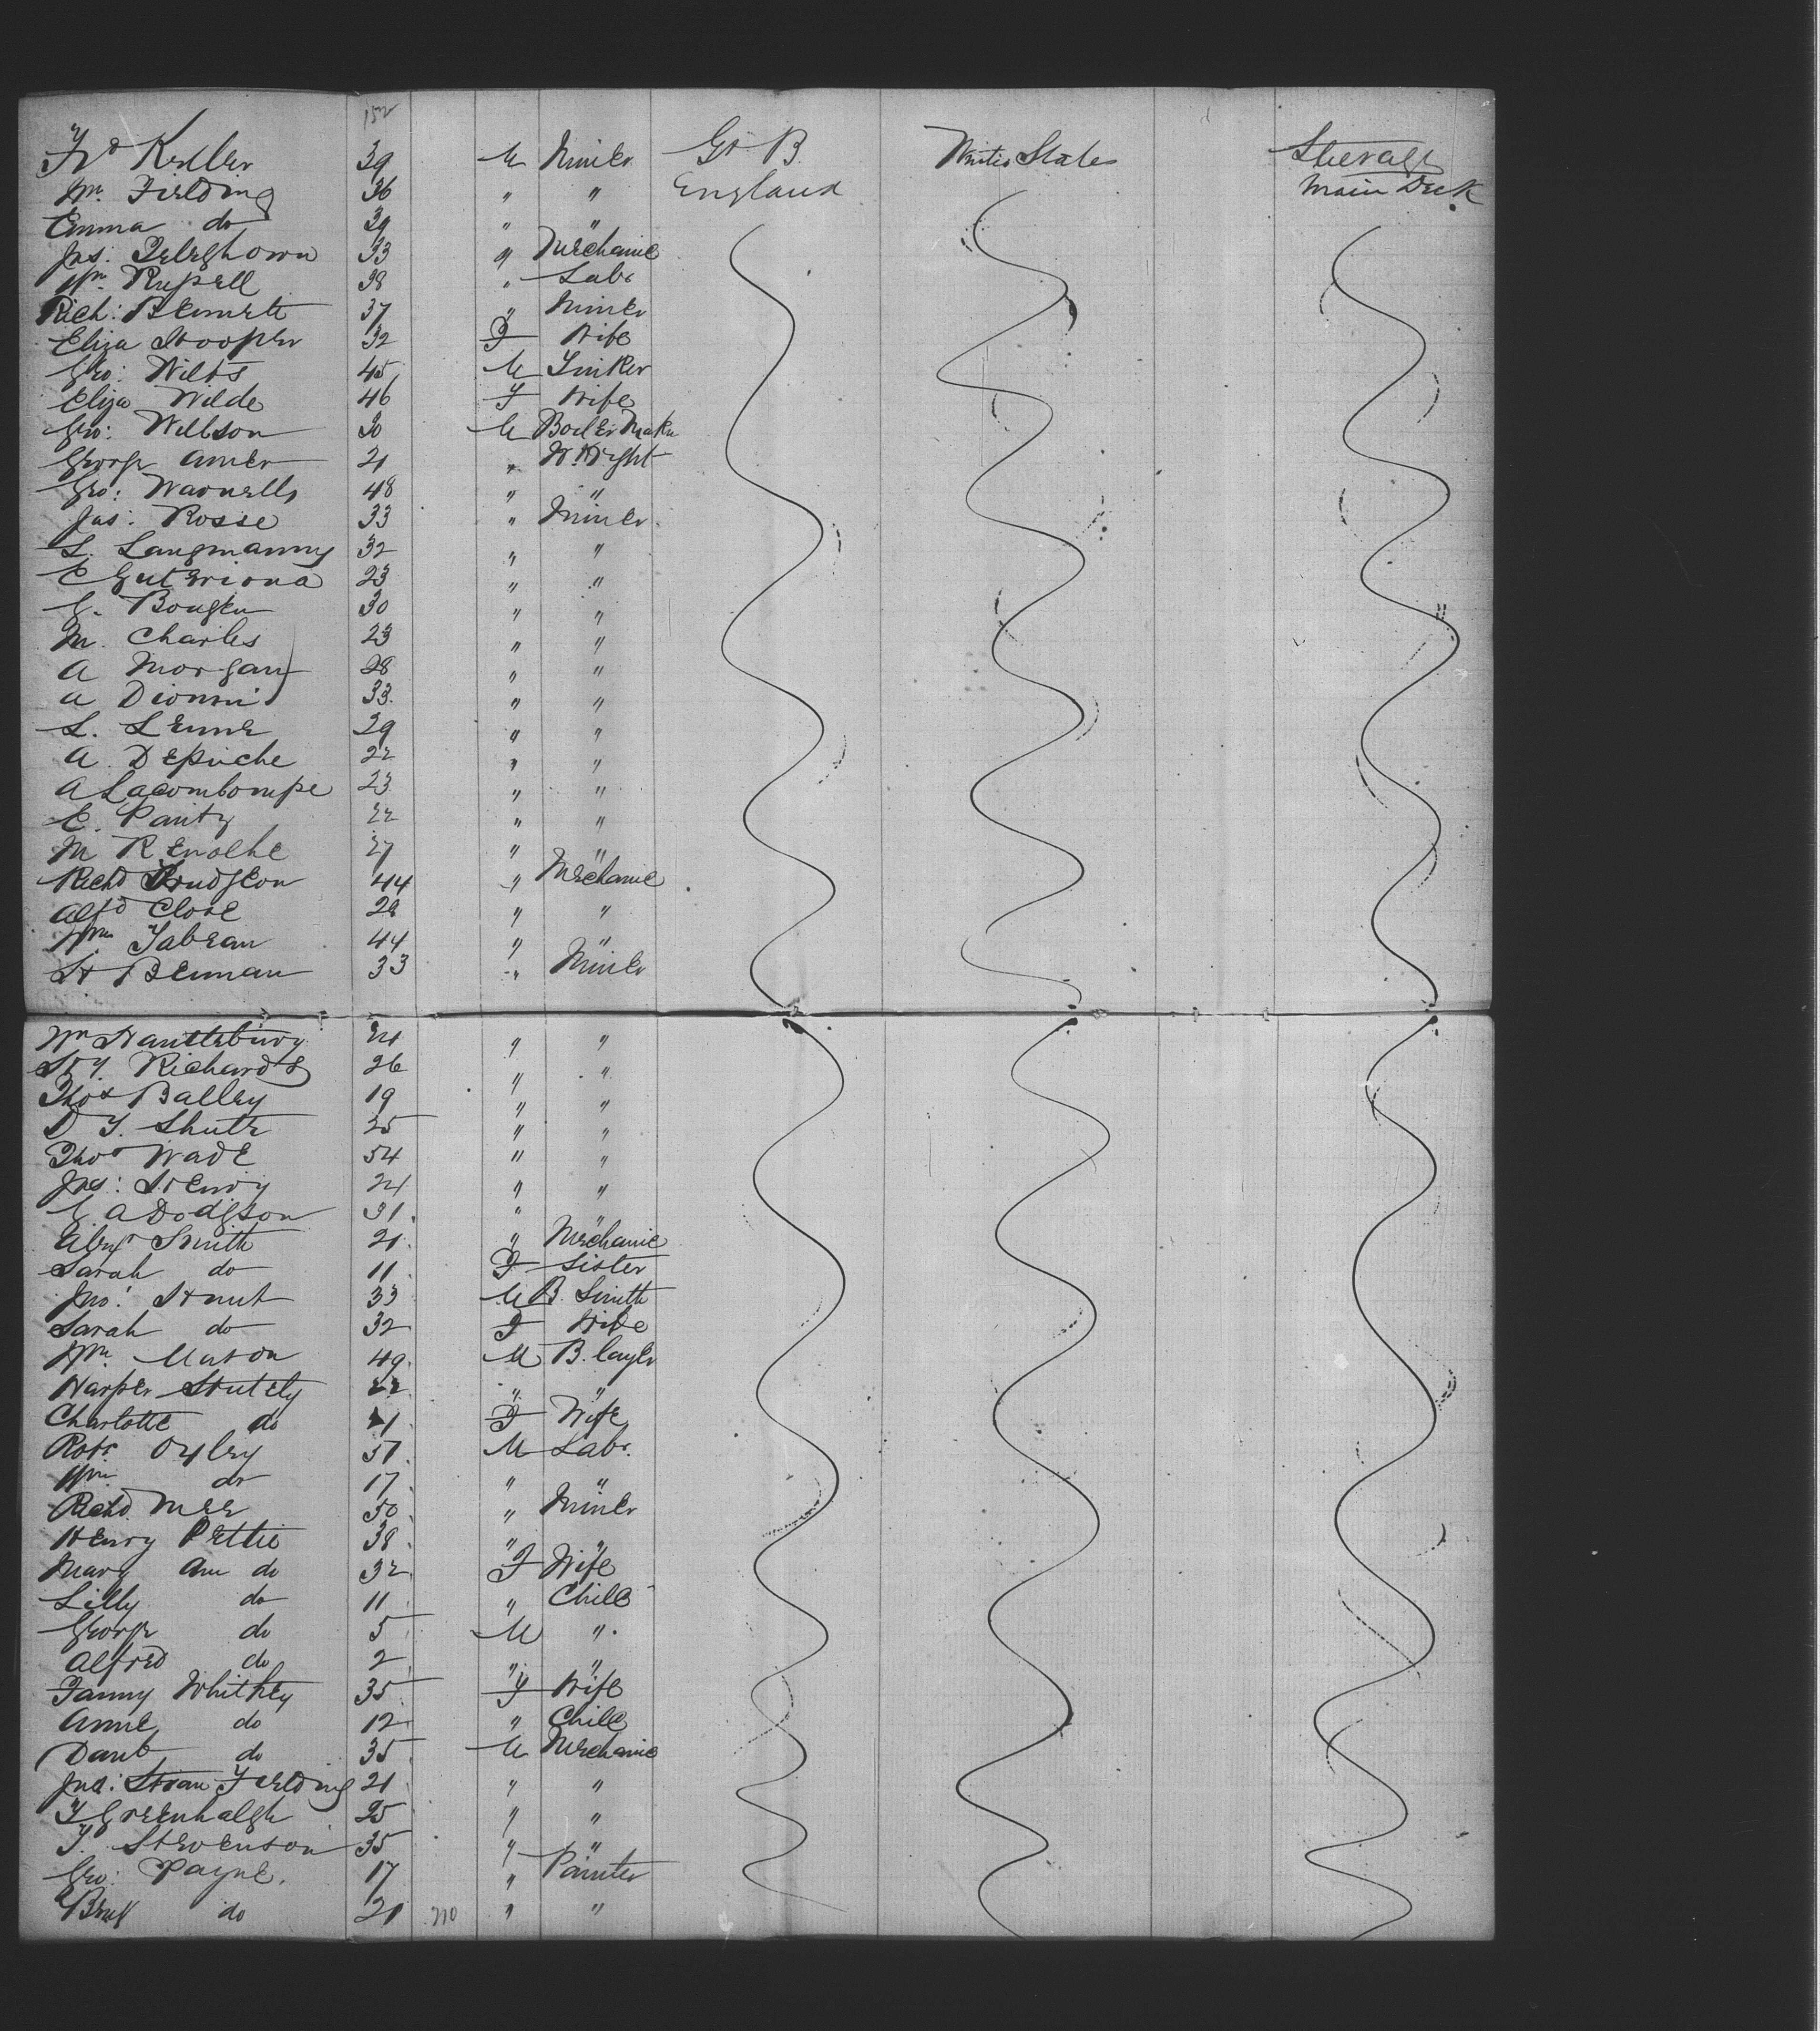 152
Frd Keller 39 M Miner Gt B. United States Steerage
Wm. Fielding 36 " " England Main Deck
Emma do 39 " "
Jas: 33 " Mechanic
Wm. Russell 38 " Labr
Rich: Bennett 37 " Miner
Eliza Hooper 32 F Wife
Geo: Wilds 45 M Tinker
Eliza Wilde 46 F Wife
Geo: Willson 30 M Boiler Maker
George Amer 21 " W.Wright
Geo: Warnells 48 " "
Jas: Rosse 33 " Miner
L. Langmanny 32 " "
E Guteriona 23 " "
G. Bougen 30 " "
M. Charles 23 " "
A Morgan 28 " "
A Dionni 33 " "
L. Lenne 29 " "
A. Depuche 22 " "
A Lacombompe 23 " "
E. Panty 22 " "
M Renoehe 27 " "
Richd Trudgeon 44 " Mechanic
Alfd Close 28 " "
Wm Tabean 44 " "
H Benman 33 " Miner
Wm 24 " "
Hy. Richards 26 " "
Thos Balley 19 " "
D T. Shutr 25 " "
Thos Wade 54 " "
Jas: Henry 24 " "
G A Dodgson 31 " "
Alexr Smith 21 " Mechanic
Sarah do 11 F Sister
Jno: Hunt 33 M B. Smith
Sarah do 32 F Wife
Wm. Maton 49 M B. layer
Harper Stutely 22 " "
Charlotte do 21 F Wife
Robt. Oxley 51 M Labr.
Wm do 17 " "
Richd. Mee 50 " Miner
Henry Pettie 38 " "
Mary Ann do 32 F Wife
Lilly do 11 " Child
George do 5 M "
Alfred do 2 " "
Fanny Whitkey 35 F Wife
Anne do 12 " Child
Danl do 35 M Mechanic
Jno: Fielding 21 " "
T Greenhalgh 25 " "
T. Stevenson 35 " "
Geo: Payne. 17 " Painter
do 21 210 " "